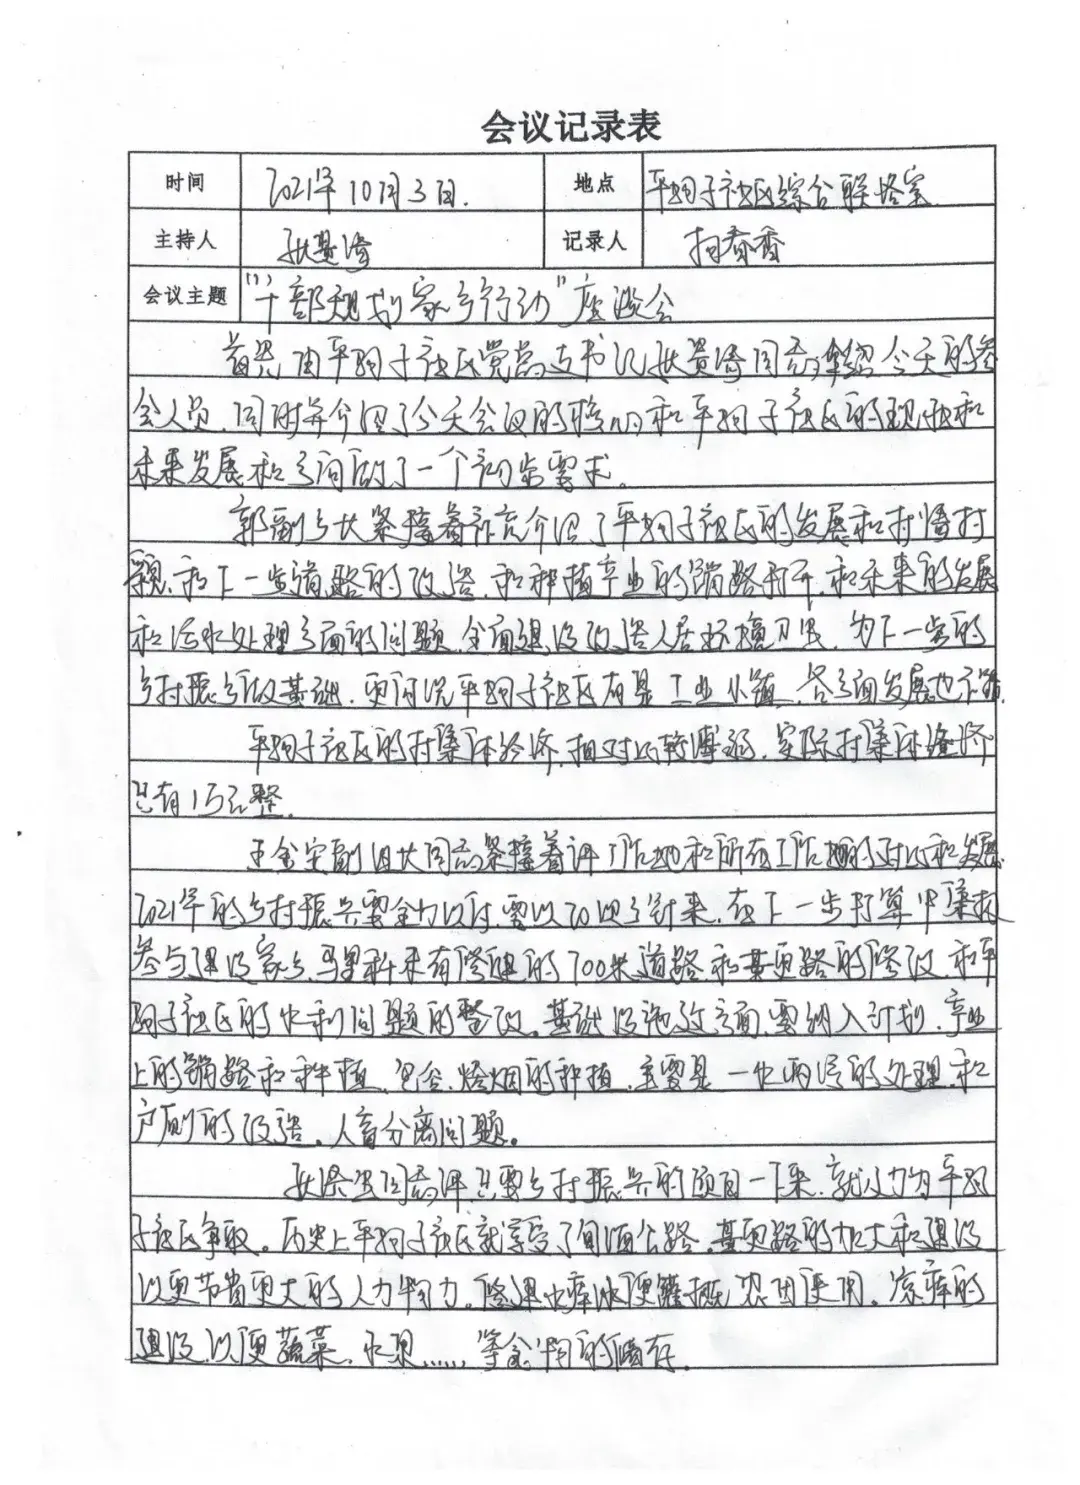 会议记录表
时间 2021年10月3日. 地点 平坝子社区综合联络室
主持人 张贵 记录人 春香
会议主题 "干部规划家乡行动"座谈会
首先由平坝子社区党总支书记张贵同志介绍今天的参
会人员.同时并介绍了今天会议的和平坝子社区的现状和
未来发展和方向做了一个初步要求.
郭副乡长紧接着补充介绍了平坝子社区的发展和村情村
貌.和下一步道路的改造.和种植产业的销路打开.和未来的发展
和污水处理方面的问题.全面建设改造人居环境卫生.为下一步的
乡村振兴做基础.更何况平坝子社区有是工业小镇.各方面发展也不错.
平坝子社区的村集体经济.相对比较薄弱.实际村集体经济
只有15元整.
王金宝副组长同志紧接着讲工作地和所在工作地的对比和发展.
2021年的乡村振兴要全力以付.要以来.在下一步打算中集
参与建设家乡.马里科未有修建的700米道路和基更路的修改.和平
坝子社区的水利问题的整改.基础设施方面.要纳入计划.产业
上的销路和种植.包含.烤烟的种植.主要是一水两污的处理.和
户厕的改造.人畜分离问题.
张同志讲只要乡村振兴的项目一下来.就会为平坝
子社区争取.历史上平坝子社区就享受了公路.基更路的加大和建设
以更节省更大的人力物力.修建水库以便灌溉农田使用.凉库的
建设.以便蔬菜.水果......等食物的储存.